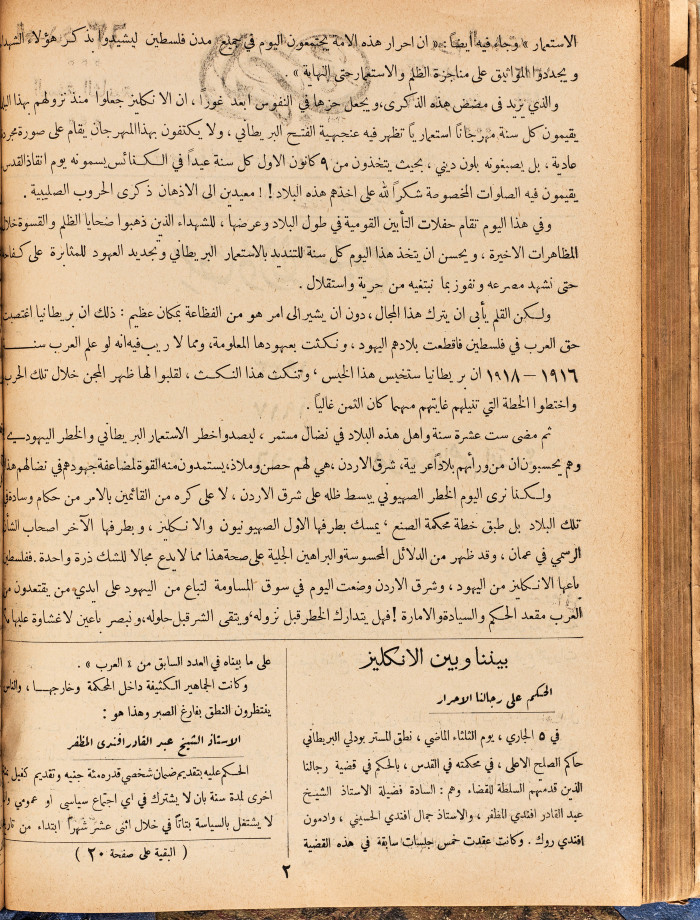 الاستعمار » وجاء فيه ايضاً : « ان احرار هذه الامة يجتمعون اليوم في جميع مدن فلسطين ليشيدوا بذكر هؤلاء الشهداء
ويجددوا المواثيق على مناجزة الظلم والاستعمار حتى النهاية » .
والذي يزيد في مضض هذه الذكرى، ويجعل حزها في النفوس ابعد غورا ، ان الانكليز جعلوا منذ نزولهم بهذا البلد
يقيمون كل سنة مهرجاناً استعمارياً تظهر فيه عنجهية الفتح البريطاني ، ولا يكتفون بهذا المهرجان يقام على صورة مجردة
عادية ، بل يصبغونه بلون ديني ، بحيث يتخذون من ٩ كانون الاول كل سنة عيداً في الكنائس يسمونه يوم انقاذ القدس
يقيمون فيه الصلوات المخصوصة شكراً لله على اخذهم هذه البلاد ! ! معيدين الى الاذهان ذكرى الحروب الصليبية .
وفي هذا اليوم تقام حفلات التأبين القومية في طول البلاد وعرضها ، للشهداء الذين ذهبوا ضحايا الظلم والقسوة خلال
المظاهرات الاخيرة ، ويحسن ان يتخذ هذا اليوم كل سنة للتنديد بالاستعمار البريطاني وتجديد العهود للمثابرة على كفاحه
حتى نشهد مصرعه ونفوز بما نبتغيه من حرية واستقلال .
ولكن القلم يأبى ان يترك هذا المجال ، دون ان يشير الى امر هو من الفظاعة بمكان عظيم : ذلك ان بريطانيا اغتصبت
حق العرب في فلسطين فاقطعت بلادهم اليهود ، ونكثت بعهودها المعلومة، ومما لا ريب فيه انه لو علم العرب سنة
١٩١٦ – ١٩١٨ ان بريطانيا ستخيس هذا الخيس ، وتنكث هذا النكث ، لقلبوا لها ظهر المجن خلال تلك الحرب
واختطوا الخطة التي تنيلهم غايتهم مهما كان الثمن غالياً .
ثم مضى ست عشرة سنة واهل هذه البلاد في نضال مستمر ، ليصدوا خطر الاستعمار البريطاني والخطر اليهودي
وهم يحسبون ان من ورائهم بلاداً عربية، شرق الاردن ، هي لهم حصن وملاذ، يستمدون منه القوة لمضاعفة جهودهم في نضالهم هذا
ولكنا نرى اليوم الخطر الصهيوني يبسط ظله على شرق الاردن ، لا على كره من القائمين بالامر من حكام وسادة في
تلك البلاد بل طبق خطة محكمة الصنع ، يمسك بطرفها الاول الصهيونيون والانكليز ، وبطرفها الآخر اصحاب الشأن
الرسمي في عمان ، وقد ظهر من الدلائل المحسوسة والبراهين الجلية على صحة هذا مما لا يدع مجالا للشك ذرة واحدة . ففلسطين
باعها الانكليز من اليهود ، وشرق الاردن وضعت اليوم في سوق المساومة لتباع من اليهود على ايدي من يقتعدون من
العرب مقعد الحكم والسيادة والامارة ! فهل يتدارك الخطر قبل نزوله، ويتقى الشر قبل حلوله، ونبصر باعين لا غشاوة عليها
بيننا وبين الانكليز
الحكم على رجالنا الاحرار
في ٥ الجاري ، يوم الثلثاء الماضي ، نطق المستر بودلي البريطاني
حاكم الصلح الاعلى ، في محكمته في القدس ، بالحكم في قضية رجالنا
الذين قدمتهم السلطة للقضاء وهم : السادة فضيلة الاستاذ الشيخ
عبد القادر افندي المظفر ، والاستاذ جمال افندي الحسيني ، وادمون
افندي روك . وكانت عقدت خمس جلسات سابقة في هذه القضية
على ما بيناه في العدد السابق من « العرب » .
وكانت الجماهير الكثيفة داخل المحكمة وخارجها ، والناس
ينتظرون النطق بفارغ الصبر وهذا هو :
الاستاذ الشيخ عبد القادر افندي المظفر
الحكم عليه بتقديم ضمان شخصي قدره مئة جنيه وتقديم كفيل
اخرى لمدة سنة بان لا يشترك في اي اجتماع سياسي او عمومي
لا يشتغل بالسياسة بتاتاً في خلال اثنى عشر شهراً ابتداء من
( البقية على صفحة ٢٠ )
٢